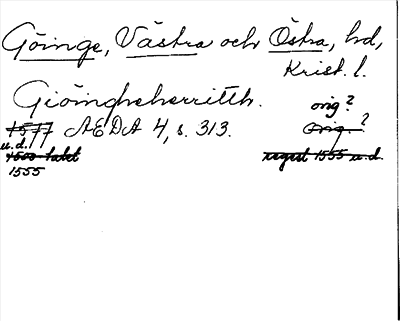 Göinge, Västra och Östra, hd,
Krist. l.
Giöingheherritth.
orig?
1577 AEDA 4, s. 313.
orig. ?
u.d.
1500-talet
regest 1555 u.d.
1555